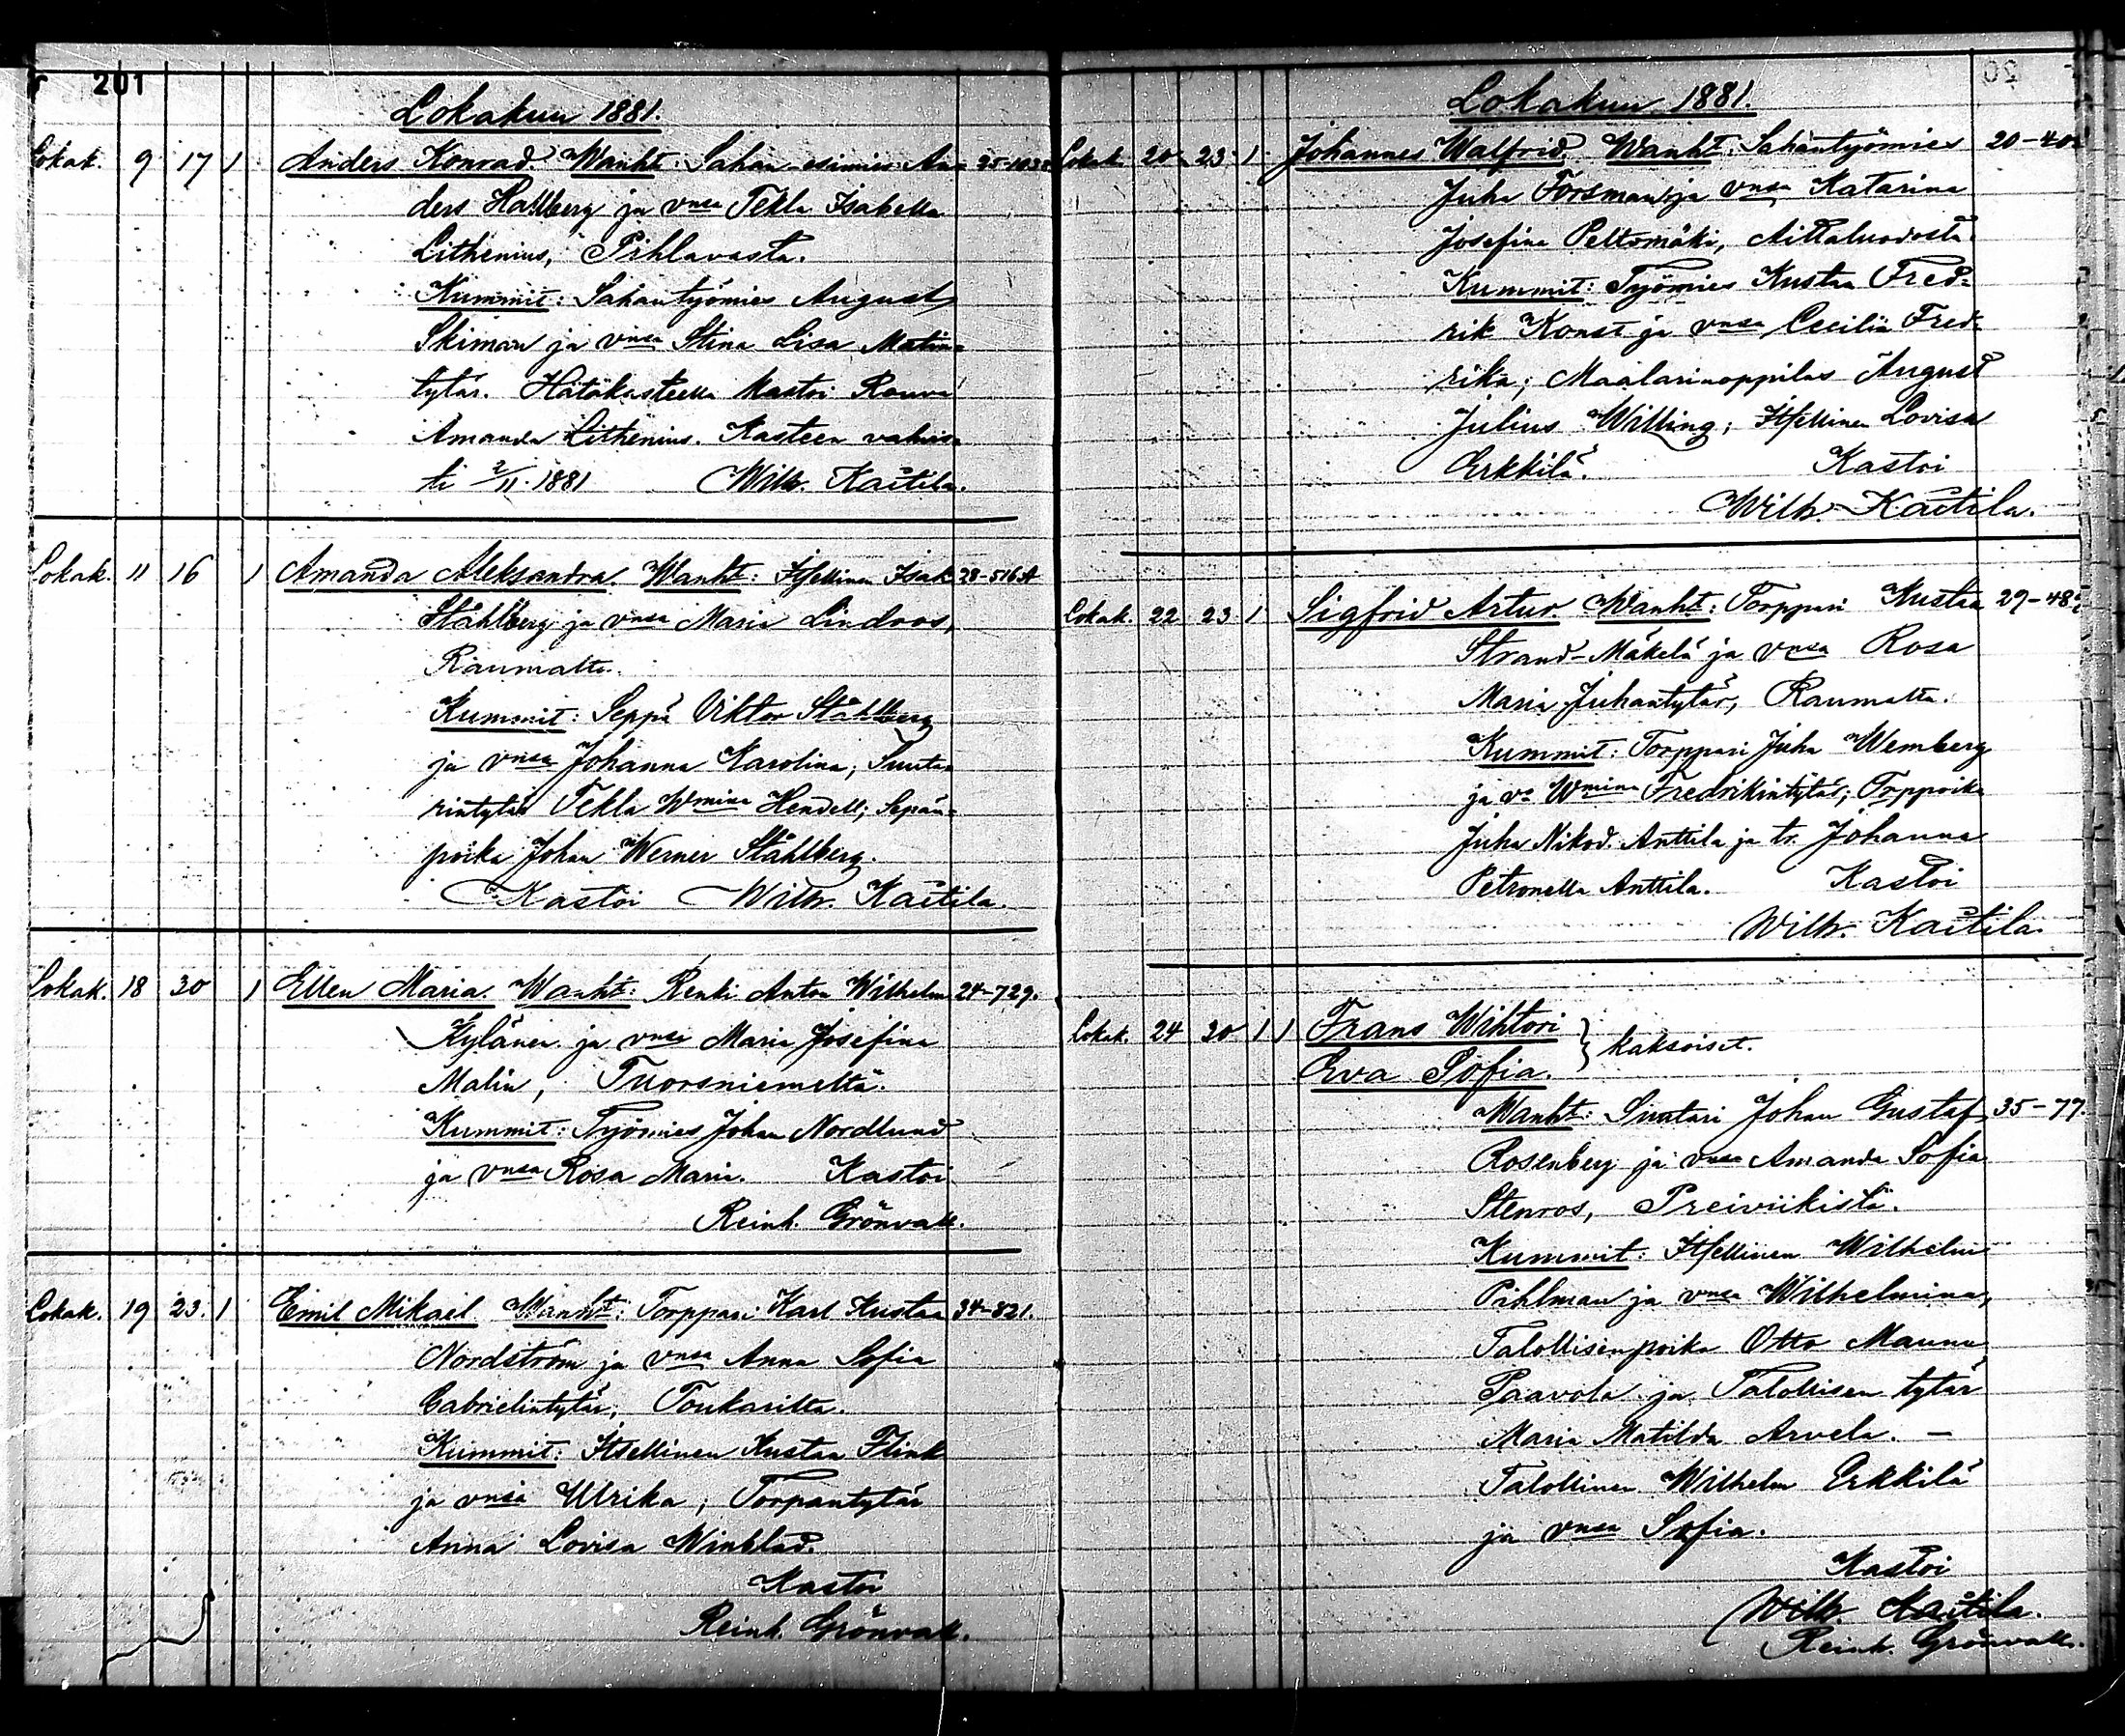 201
Lokakuu 1881.
Lokak. 9 17 1 Anders Konrad. Wanht: Sahan-esimies An-
ders Hallberg ja vnsa Tekla Isabella
Lithenius, Pihlavasta.
Kummit: Sahantyömies August
Skiman ja vnsa Stina Lisa Matin-
tytär. Hätäkasteella kastoi Rouva
Amanda Lithenius. Kasteen vahvis-
ti 2/11. 1881 Wilh. Kaitila.
Lokak. 11 16 1 Amanda Aleksandra. Wanht: Itsellinen Isak 28-516 A
Ståhlberg ja vnsa Maria Lindoos,
Raumalta.
Kummit: Seppä Viktor Ståhlberg
ja vnsa Johanna Karolina; Suuta-
rintytär Tekla Wmina Hendell; Sepän-
poika Johan Werner Ståhlberg.
Kastoi Wilh. Kaitila.
Lokak. 18 30 1 Ellen Maria. Wanht: Renki Anton Wilhelm 24-729.
Kylänen ja vnsa Maria Josefina
Malin, Tuorsniemeltä.
Kummit: Työmies Johan Nordlund
ja vnsa Rosa Maria. Kastoi
Reinh. Grönvall.
Lokak. 19 23. 1 Emil Mikael Wanht: Torppari Karl Kustaa 34-821.
Nordström ja vnsa Anna Sofia
Gabrielintytär, Toukarilta.
Kummit: Itsellinen Kustaa Flink
ja vnsa Ulrika; Torpantytär
Anna Lovisa Winblad.
Kastoi
Reinh. Grönvall.
Lokakuu 1881.
Lokak. 20 23 1 Johannes Walfrid. Wanht: Sahantyömies
Juha Forsman ja vnsa Katarina
Josefina Peltomäki, Aittaluodosta.
Kummit: Työmies Kustaa Fred-
rik Konst ja vnsa Cecilia Fred-
rika; Maalarinoppilas August
Julius Willing; Itsellinen Lovisa
Erkkilä. Kastoi
Wilh. Kaitila.
Lokak. 22 23 1 Sigfrid Artur. Wanht: Torppari Kustaa
Strand-Mäkelä ja vnsa Rosa
Maria Juhantytär, Raumalta.
Kummit: Torppari Juha Wemberg
ja vo Wmina Fredrikintytär; Torppoika
Juha Nikod. Anttila ja tr. Johanna
Petronella Anttila. Kastoi
Wilh. Kaitila.
Lokak. 24 30 1 1 Frans Wihtori
Eva Sofia. } kaksoiset.
Wanht: Suutari Johan Gustaf 35-77.
Rosenberg ja vnsa Amanda Sofia
Stenros, Preiviikistä.
Kummit: Itsellinen Wilhelm
Pihlman ja vnsa Wilhelmina,
Talollisenpoika Otto Manne
Paavola ja Talollisen tytär
Maria Matilda Arvela. —
Talollinen Wilhelm Erkkilä
ja vnsa Sofia.
Kastoi
Wilh. Kaitila.
Reinh. Grönvall.